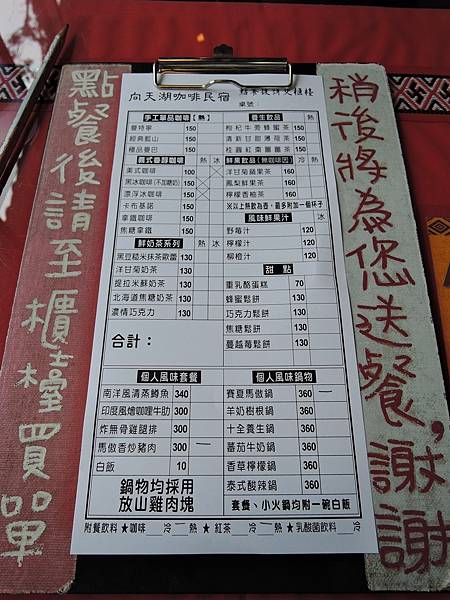 點餐後請至櫃臺買單
稍後將為您送餐，謝謝
向天湖咖啡民宿
點餐後請交櫃檯
桌號：
手工單品咖啡【熱】
曼特寧 150
經典藍山 150
極品曼巴 150
義式香醇咖啡 熱 冰
美式咖啡 100
黑冰咖啡(不加糖奶) 130
漂浮冰咖啡 150
卡布基諾 150
拿鐵咖啡 150
焦糖拿鐵 150
鮮奶茶系列 熱 冰
黑豆糙米抹茶歐蕾 130
洋甘菊奶茶 130
提拉米穌奶茶 130
北海道焦糖奶茶 130
濃情巧克力 130
合計：
養生飲品 熱
枸杞牛蒡蜂蜜茶 150
清新甘甜薄荷茶 150
桂圓紅棗薑薑茶 150
鮮果飲品(無咖啡因) 冷 熱
洋甘菊蘋果茶 160
鳳梨鮮果茶 160
檸檬香柚茶 160
※以上熱飲為壺，最多附加一個杯子
風味鮮果汁
野莓汁 120
檸檬汁 120
柳橙汁 120
甜 點
重乳酪蛋糕 70
蜂蜜鬆餅 120
巧克力鬆餅 120
焦糖鬆餅 120
蔓越莓鬆餅 120
個人風味套餐
南洋風清蒸鱒魚 340
印度風燴咖哩牛肋 300
炸無骨雞腿排 300
馬傲香炒豬肉 300
白飯 10
鍋物均採用
放山雞肉塊
個人風味鍋物
賽夏馬傲鍋 360
羊奶樹根鍋 360
十全養生鍋 360
蕃茄牛奶鍋 360
香草檸檬鍋 360
泰式酸辣鍋 360
套餐、小火鍋均附一碗白飯
附餐飲料 ★咖啡 冷 熱 ★紅茶 冷 熱 ★乳酸菌飲料 冷